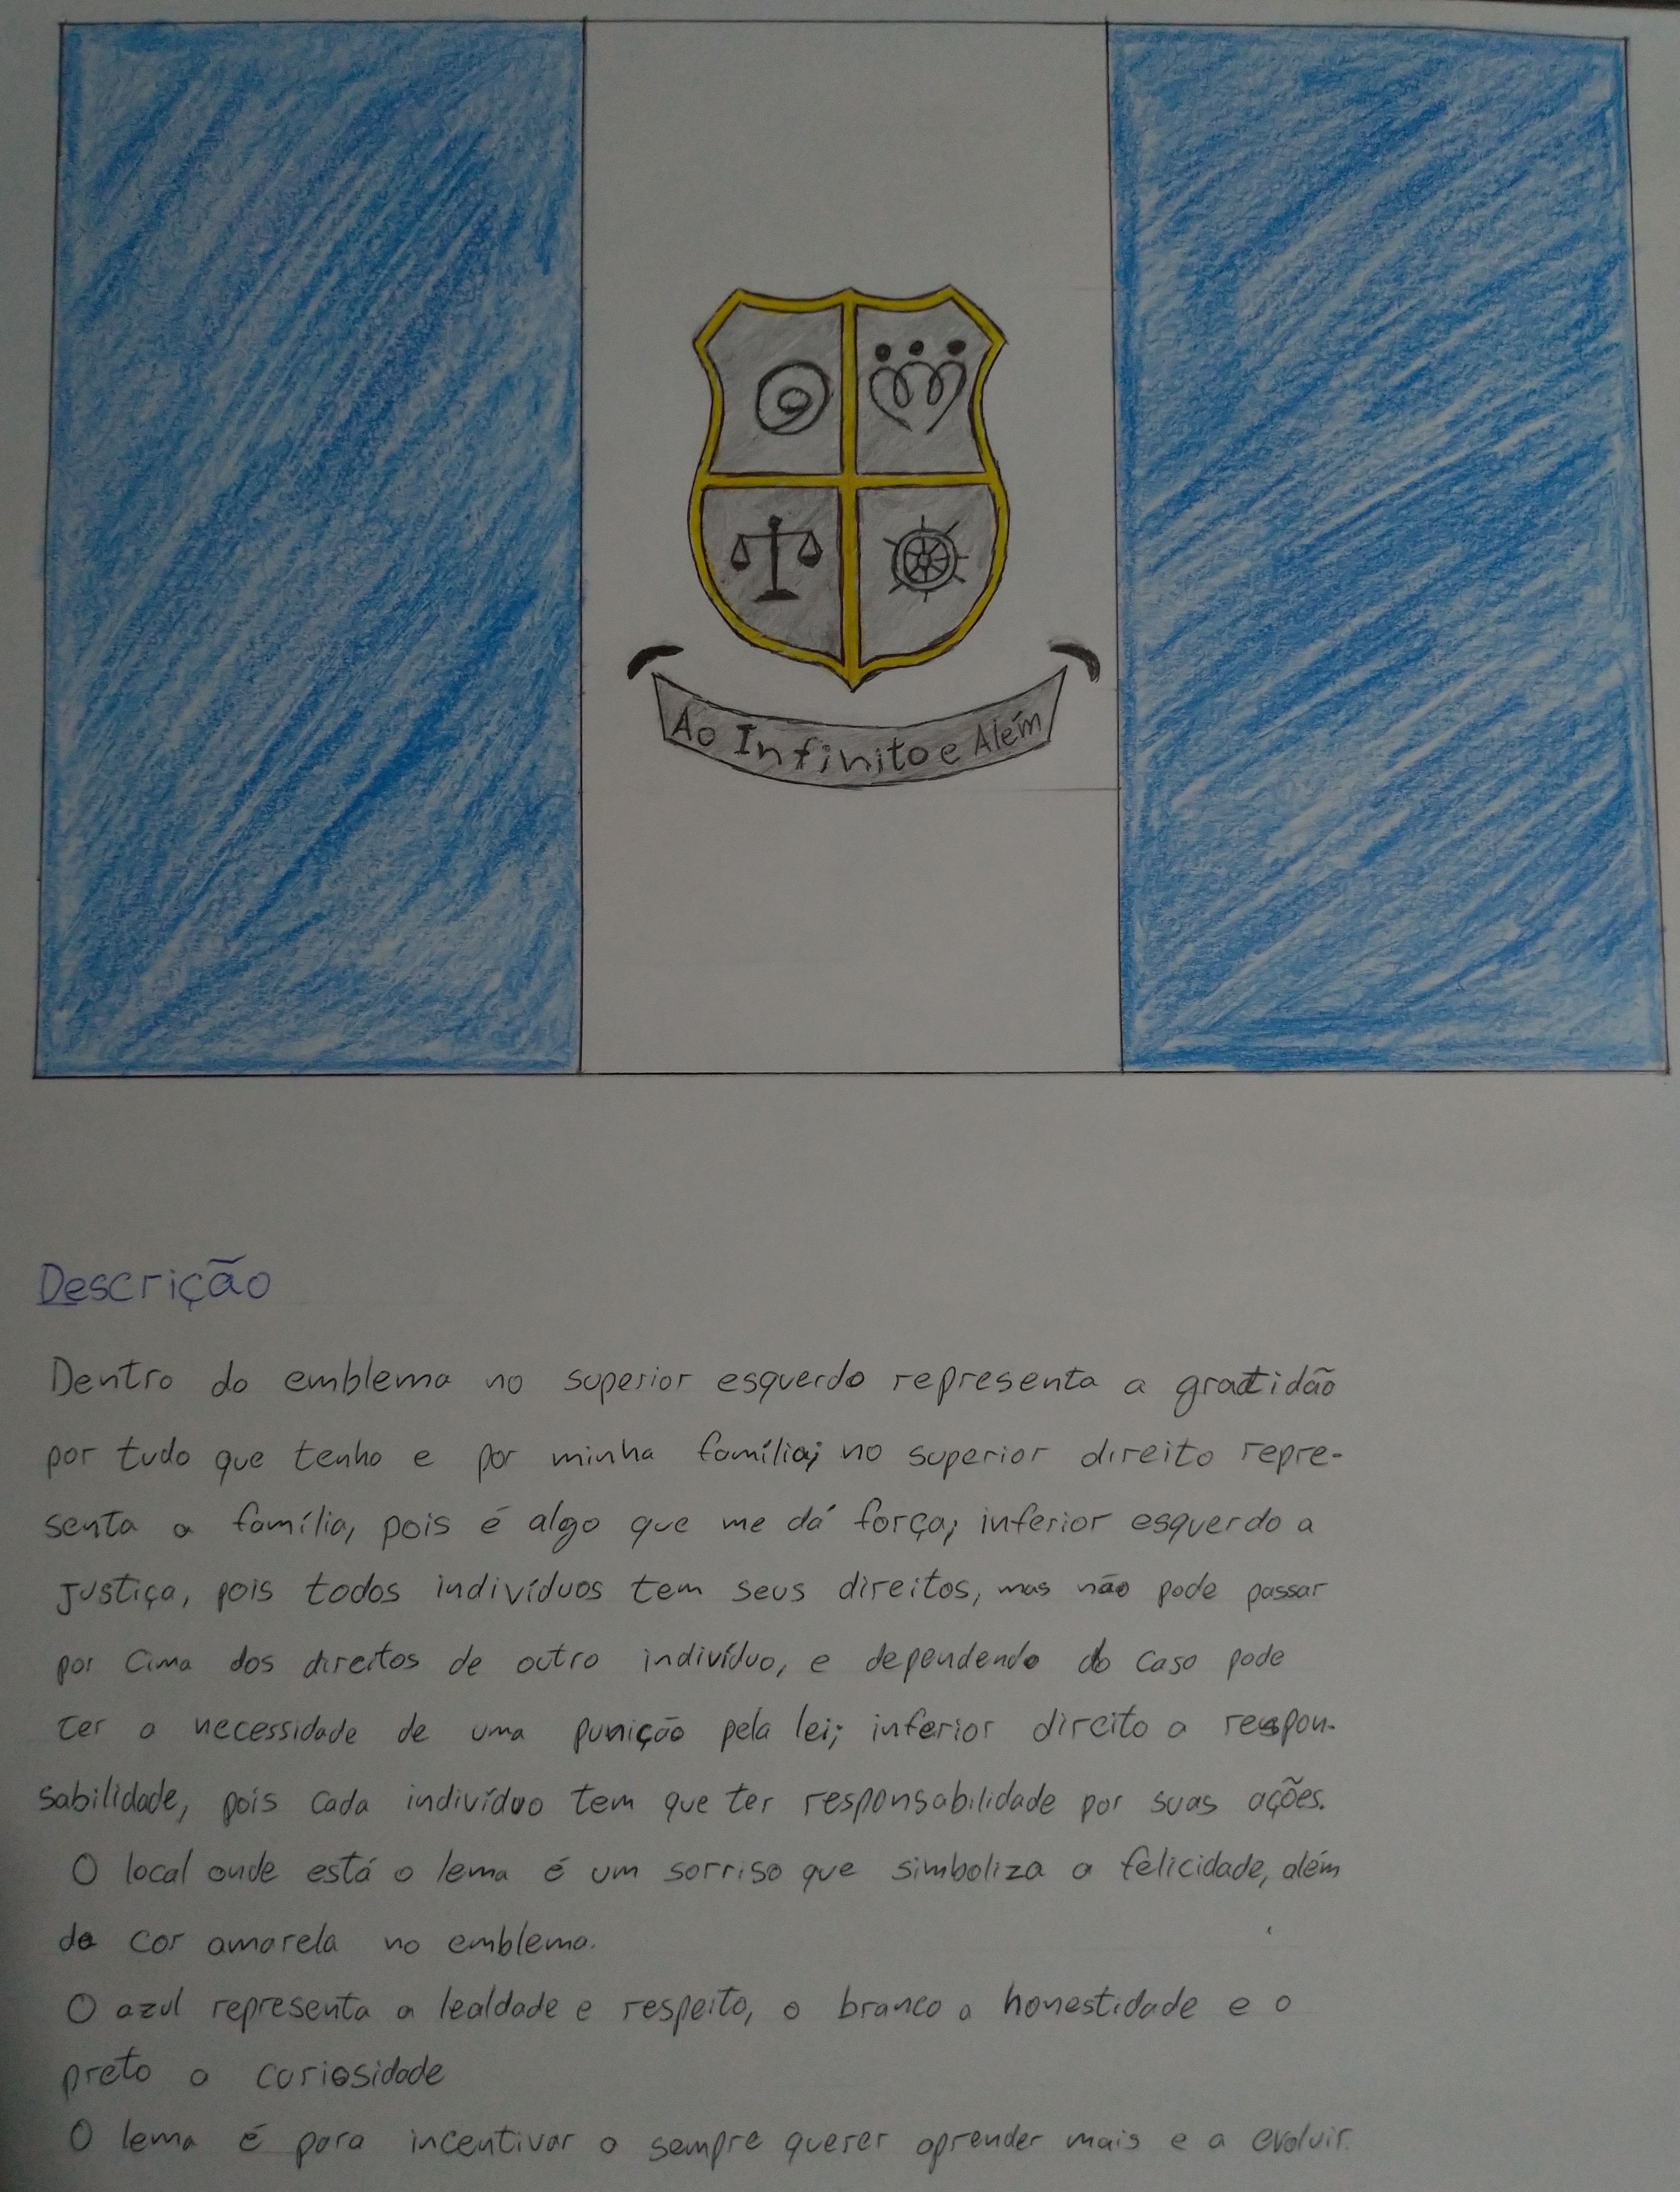 Ao Infinito e Além
Descrição
Dentro do emblema no superior esquerdo representa a gratidão
por tudo que tenho e por minha família; no superior direito repre-
senta a família, pois é algo que me dá força; inferior esquerdo a
justiça, pois todos indivíduos tem seus direitos, mas não pode passar
por cima dos direitos de outro indivíduo, e dependendo do caso pode
ter a necessidade de uma punição pela lei; inferior direito a respon-
sabilidade, pois cada indivíduo tem que ter responsabilidade por suas ações.
O local onde está o lema é um sorriso que simboliza a felicidade, além
da cor amarela no emblema.
O azul representa a lealdade e respeito, o branco a honestidade e o
preto a curiosidade
O lema é para incentivar o sempre querer aprender mais e a evoluir.